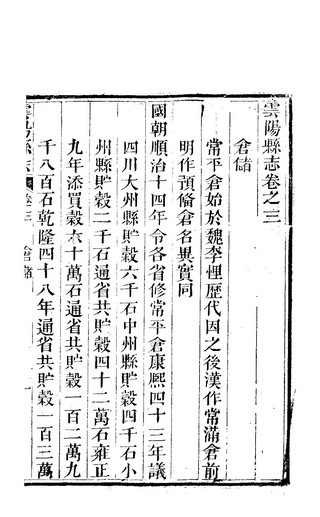 雲陽縣志卷之三
倉儲
常平倉始於魏李悝歴代因之後漢作常滿倉前
明作預備倉名異實同
國朝順治十四年令各省修常平倉康熙四十三年議
四川大州縣貯穀六千石中州縣貯穀四千石小
州縣貯穀二千石通省共貯穀四十二萬石雍正
九年添買穀六十萬石通省共貯穀一百二萬九
千八百石乾隆四十八年通省共貯穀一百三萬
雲陽縣志 卷三 倉儲 一